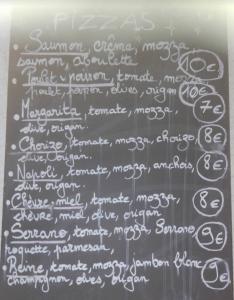 PIZZAS
• Saumon, crème, mozza,
saumon, ciboulette 10€
• Poulet-poivron, tomate, mozza,
poulet, poivron, olives, origan 10€
• Margarita, tomate, mozza,
olive, origan. 7€
• Chorizo, tomate, mozza, chorizo,
olive, origan. 8€
• Napoli, tomate, mozza, anchois,
olive, origan 8€
• Chèvre-miel, tomate, mozza,
chèvre, miel, olive, origan 8€
• Serrano, tomate, mozza, Serrano,
roquette, parmesan, 9€
• Reine, tomate, mozza, jambon blanc,
champignon, olives, origan 9€